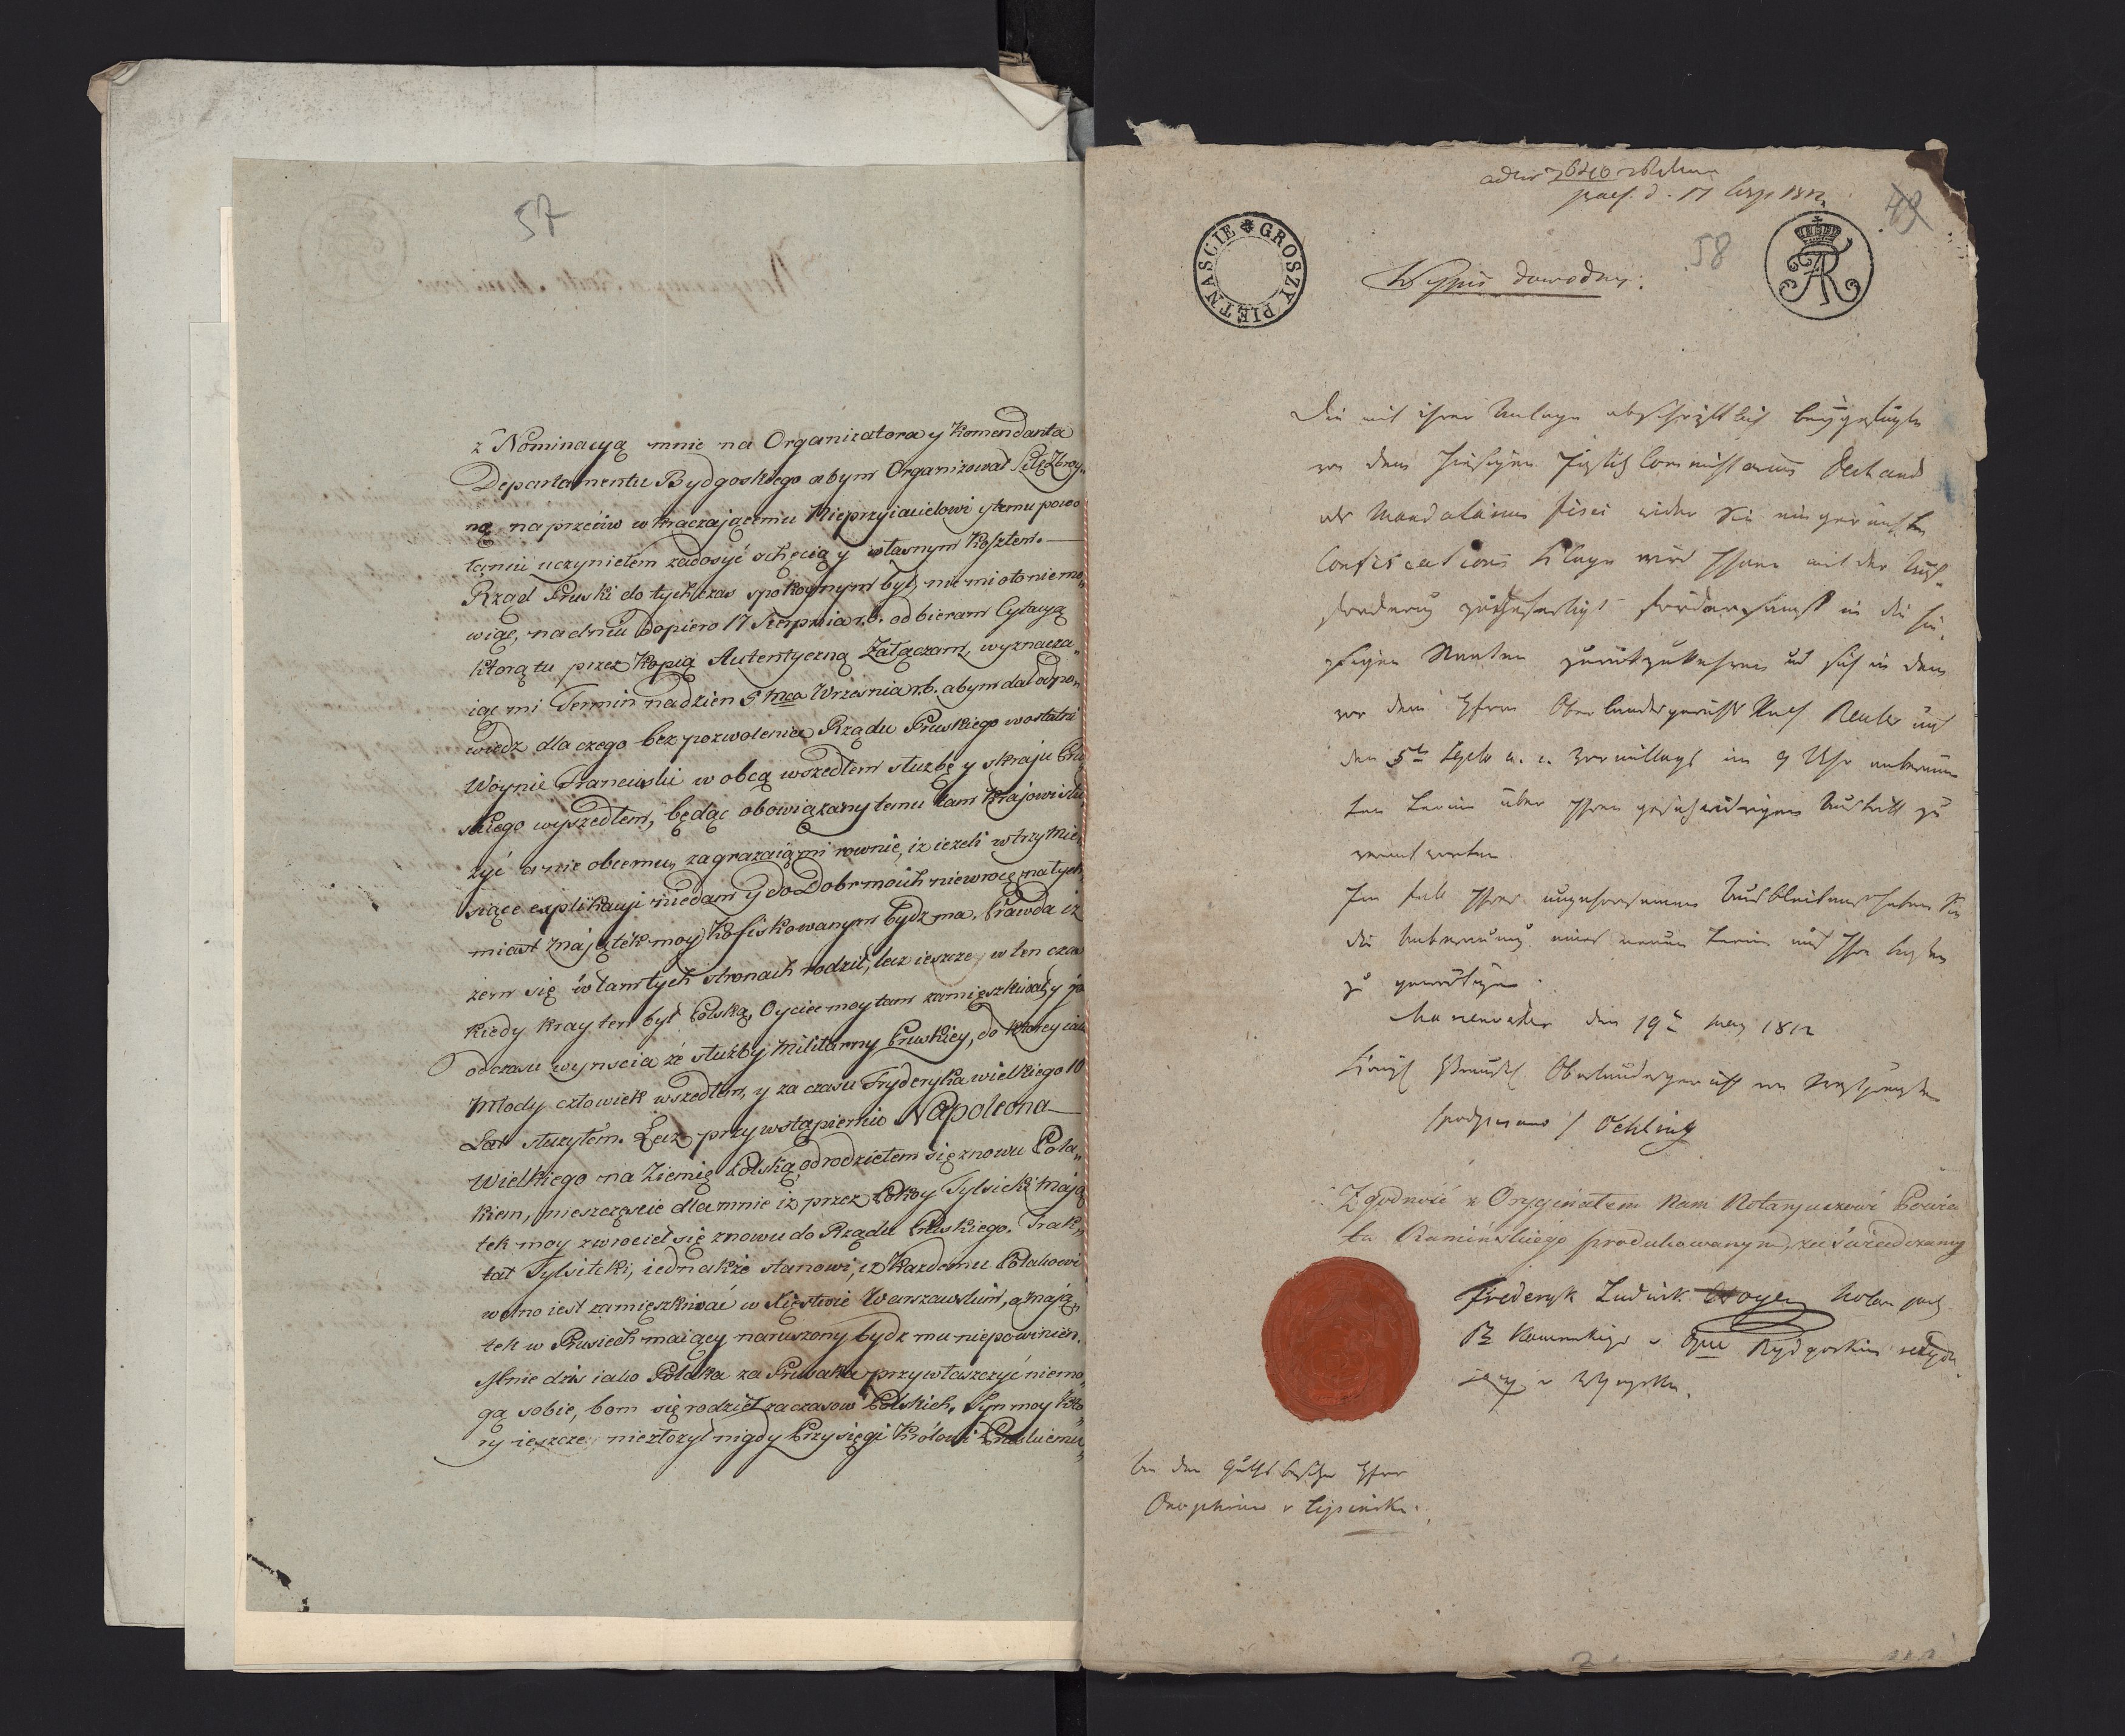 57
z Nominacyą mnie na Organizatora y Komendanta
Departamentu Bydgoskiego abym Organizował Siłę Zbroy„
ną naprzeciw wkraczaiącemu Nieprzyiacielowi y temu powo
łaniu uczyniełem zadosyć ochęcią y własnym Kosztem.
Rząd Pruski do tych czas spokoynym był, nie miało niemo„
wiąc, na dniu dopiero 17 Sierpnia r.b. odbieram Cytacyą
którą tu przez Kopią Autentyczną Załączam, wyznacza„
iąc mi Termin na dzien 5 mca Września r.b. abym dał odpo„
wiedz dla czego bez pozwolenia Rządu Pruskiego w ostatni
Woynie Francuski w obcą wszedłem służbę y skraju Pru
skiego wyszedłem, będąc obowiązany temu tam Krajowi słu„
żyć a nie obcemu, zagrażaią mi rownie, iż ieżeli w trzy Mie„
siące explikacyi niedam y do Dobr moich niewrocę natych„
miast Znajątek moy Kofiskowanym bydz ma. Prawda iż
żem się w tamtych stronach rodził, lecz ieszcze w ten czas
kiedy Kray ten był Polską, Oyciec moy tam zamięszkiwał y ja
od czasu wynscia ze służby Militarny Pruskiey, do ktorey iako
Młody człowiek wszedłem, y za czasu Fryderyka wielkiego 10
Lat służyłem. Lecz przy wstąpieniu Napoleona
Wielkiego na Ziemię Polską, odrodziełem się znowu Pola„
kiem, nieszczęscie dla mnie iż przez Pokoy Tylsicki Mają
tek moy zwrocieł się znowu do Rządu Pruskiego. Trak„
tat Tylsitcki, iednakże stanowi, iż Kazdemu Polakowi
wolno iest zamięszkiwać w Xięstwie Warszawskim, a mają„
tek w Prusiech maiący naruszony bydz mu niepowinien.
Mnie dzis iako Polaka za Prusaka przywłaszczyć niemo„
gą sobie, bom się rodzieł za czasow Polskich, Syn moy Kto„
ry ieszcze niezłożył nigdy Przysięgi Krolowi Pruskiemu„
praes. d. 17
49
58
PIĘTNAŚCIE GROSZY
Wypis dowodny.
Die mit ihrer Anlage abschriftlich beygefügte
von dem hiesigen Justiz Commissarius Dechend
als Mandatarius fisci wider Sie eingereichte
Confiscations Klage wird Ihnen mit der Auf„
forderung zugefertigt fördersamst in die hie„
sigen Staaten zurückzukehren und sich in dem
vor dem Herrn Oberlandesgerichts Rath Reuter auf
den 5t Septr a. c. Vormittags um 9 Uhr anberaum
ten Termin über Ihren gesetzwidrigen Austritt zu
verantworten.
Im Fall Ihres ungehorsamen Ausbleibens haben Sie
die Anberaumung eines neuen Termins auf Ihre Kosten
zu gewärtigen.
Marienwerder den 19t May 1812
Königl Preußl Oberlandesgericht von Westpreußen
podpisano / Oehling
Zgodność z Oryginałem Nam Notaryuszowi Powia
tu Kamińskiego produkowanym, zaświadczamy
Frederyk Ludwik Woyen Notaryusz
Ptu Kaminskiego w Dpcie Bydgoskim
An den Guthsbesitzer Herrn
Onophrius v Lipinski.